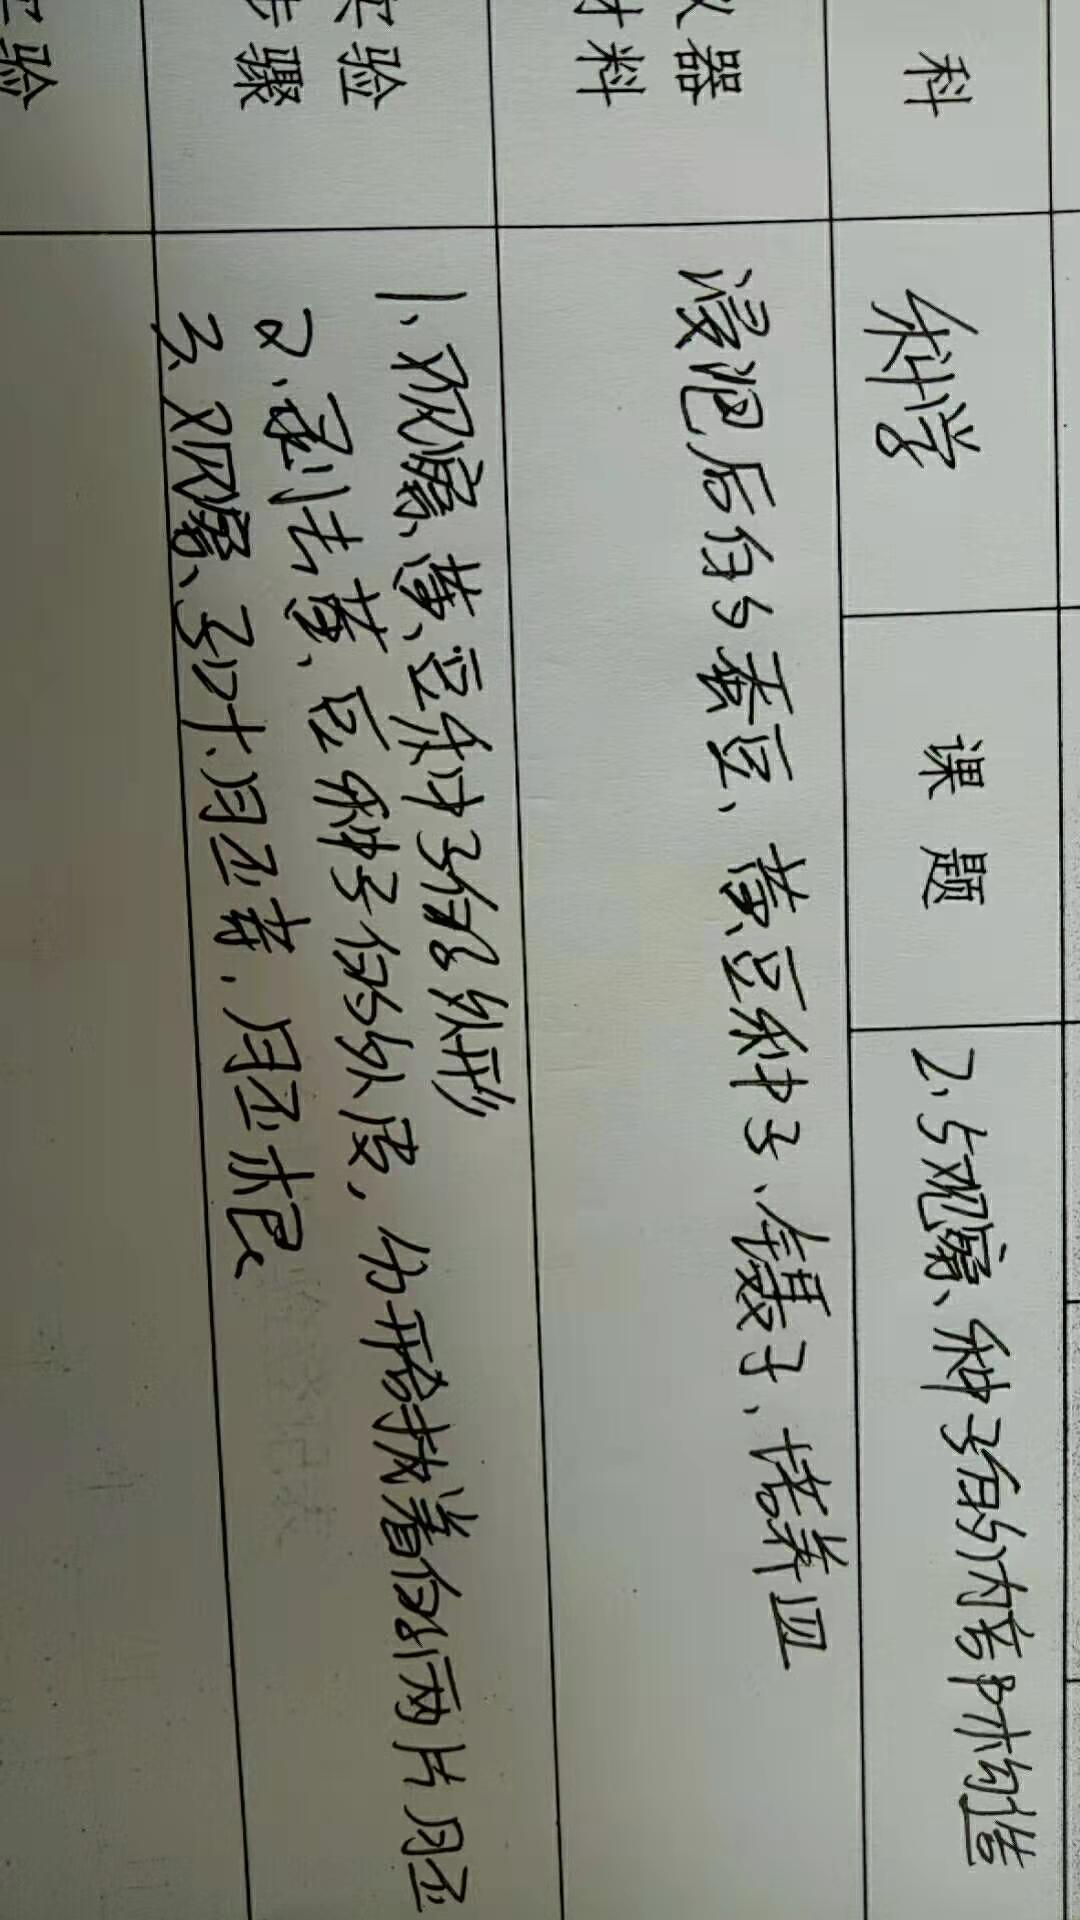 科 科学 课题 2.5观察种子的内部构造
仪器
材料
浸泡后的蚕豆、黄豆种子、镊子、培养皿
实验
步骤
1、观察黄豆种子的外形
2、剥去黄豆种子的外皮,分开合拢着的两片胚
3、观察子叶、胚芽,胚根
实验